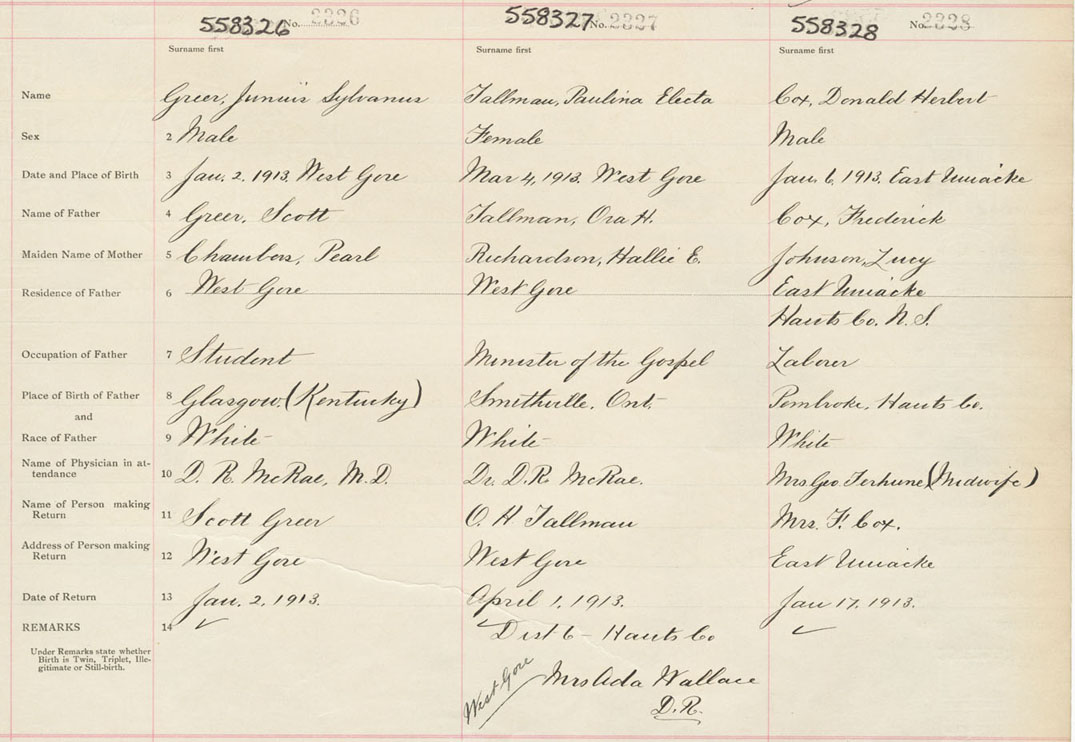 558326 No. 2326 558327 No. 2327 558328 No. 2328
Surname first Surname first Surname first
Name Greer, Junius Sylvanus Tallman, Paulina Electa Cox, Donald Herbert
Sex 2 Male Female Male
Date and Place of Birth 3 Jan. 2, 1913. West Gore Mar 4, 1913. West Gore Jan. 6, 1913. East Uniacke
Name of Father 4 Greer, Scott Tallman, Ora H. Cox, Frederick
Maiden Name of Mother 5 Chambers, Pearl Richardson, Hallie E. Johnson, Lucy
Residence of Father 6 West Gore West Gore East Uniacke
Hants Co. N. S.
Occupation of Father 7 Student Minister of the Gospel Laborer
Place of Birth of Father 8 Glasgow. (Kentucky) Smithville, Ont. Pembroke, Hants Co.
and
Race of Father 9 White White White
Name of Physician in at-
tendance 10 D. R. McRae, M.D. Dr. D.R. McRae. Mrs Geo Terhune (Midwife)
Name of Person making
Return 11 Scott Greer O. H Tallman Mrs. F. Cox.
Address of Person making
Return 12 West Gore West Gore East Uniacke
Date of Return 13 Jan. 2, 1913. April 1, 1913. Jan 17, 1913.
REMARKS 14 ✓ ✓ Dist 6 - Hants Co ✓
Under Remarks state whether
Birth is Twin, Triplet, Ille-
gitimate or Still-birth.
West Gore Mrs Ada Wallace
D.R.